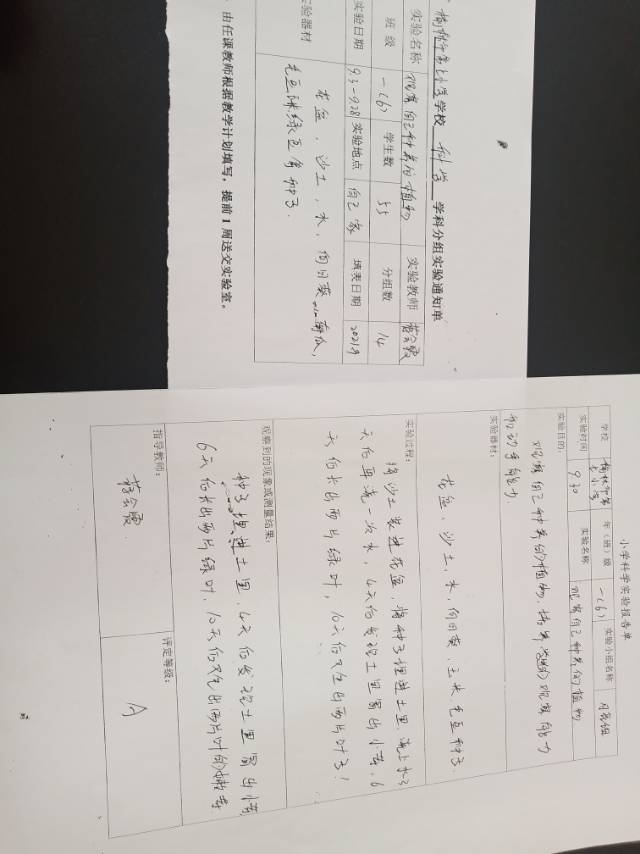 榆林市第七小学 学校 科学 学科分组实验通知单
实验名称 观察自己种养的植物 实验教师 蒋会霞
班级 一(6) 学生数 55 分组数 14
实验日期 9.3-9.28 实验地点 自己家 填表日期 2021.9
实验器材
花盆、沙土、水、向日葵、南瓜、
毛豆、绿豆等种子.
由任课教师根据教学计划填写,提前1周送交实验室。
小学科学实验报告单
学校 榆林市第七小学 年(班)级 一(6) 实验小组名称
实验时间 9.30 实验名称 观察自己种养的植物
实验目的:
观察自己种养的植物,培养学生的观察能力
和动手能力
实验器材:
花盆、沙土、水、向日葵、玉米、毛豆种子.
实验过程:
将沙土装进花盆,将种子埋进土里,浇上水3
天后再浇一次水,4天后发现土里冒出小苗,6
天后长出两片绿叶,10天后又长出两片叶子!
观察到的现象或测量结果:
种子埋进土里,4天后发现土里冒出小苗
6天后长出两片绿叶,10天后又长出两片叶的嫩苗.
指导教师: 蒋会霞 评定等级: A